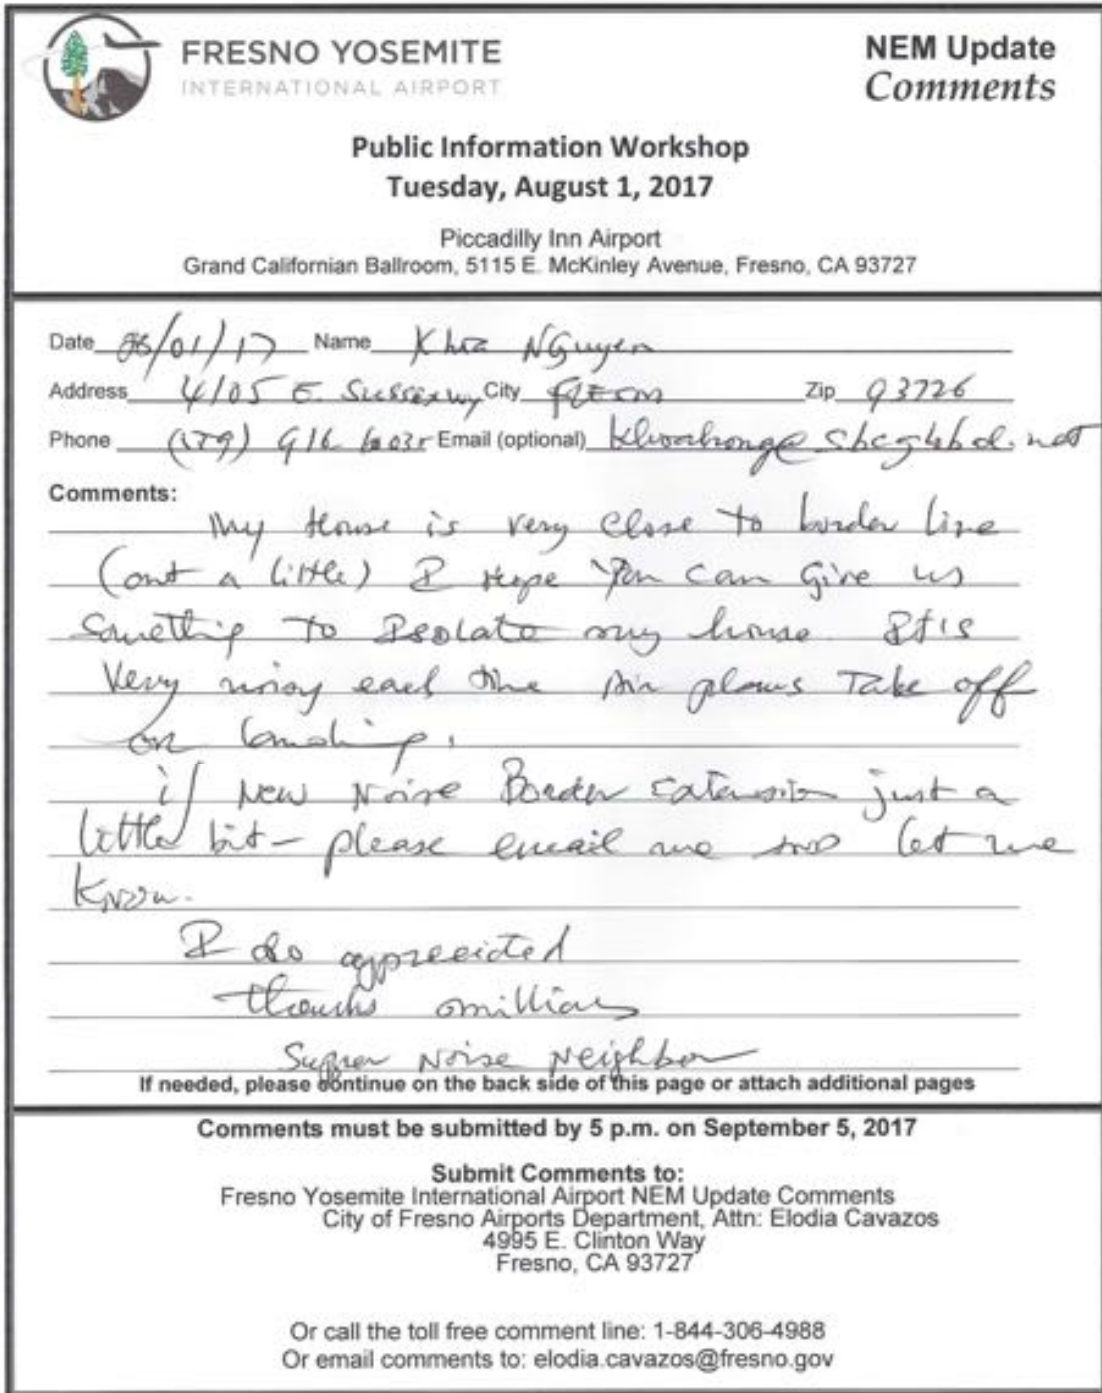 FRESNO YOSEMITE
INTERNATIONAL AIRPORT
NEM Update
Comments
Public Information Workshop
Tuesday, August 1, 2017
Piccadilly Inn Airport
Grand Californian Ballroom, 5115 E. McKinley Avenue, Fresno, CA 93727
Date 08/01/17 Name Khoa NGuyen
Address 4105 E. Sussex wy City Zip 93726
Phone Email (optional)
Comments:
My House is very Close to border line
(out a little) I Hope You can Give us
Something To Isolate my house. It is
Very noisy each time Air planes Take off
or landing.
if New Noise Border extension just a
little bit - please email me and let me
Know.
I do appreciated
thanks amillion
Noise Neighbor
If needed, please continue on the back side of this page or attach additional pages
Comments must be submitted by 5 p.m. on September 5, 2017
Submit Comments to:
Fresno Yosemite International Airport NEM Update Comments
City of Fresno Airports Department, Attn: Elodia Cavazos
4995 E. Clinton Way
Fresno, CA 93727
Or call the toll free comment line: 1-844-306-4988
Or email comments to: elodia.cavazos@fresno.gov